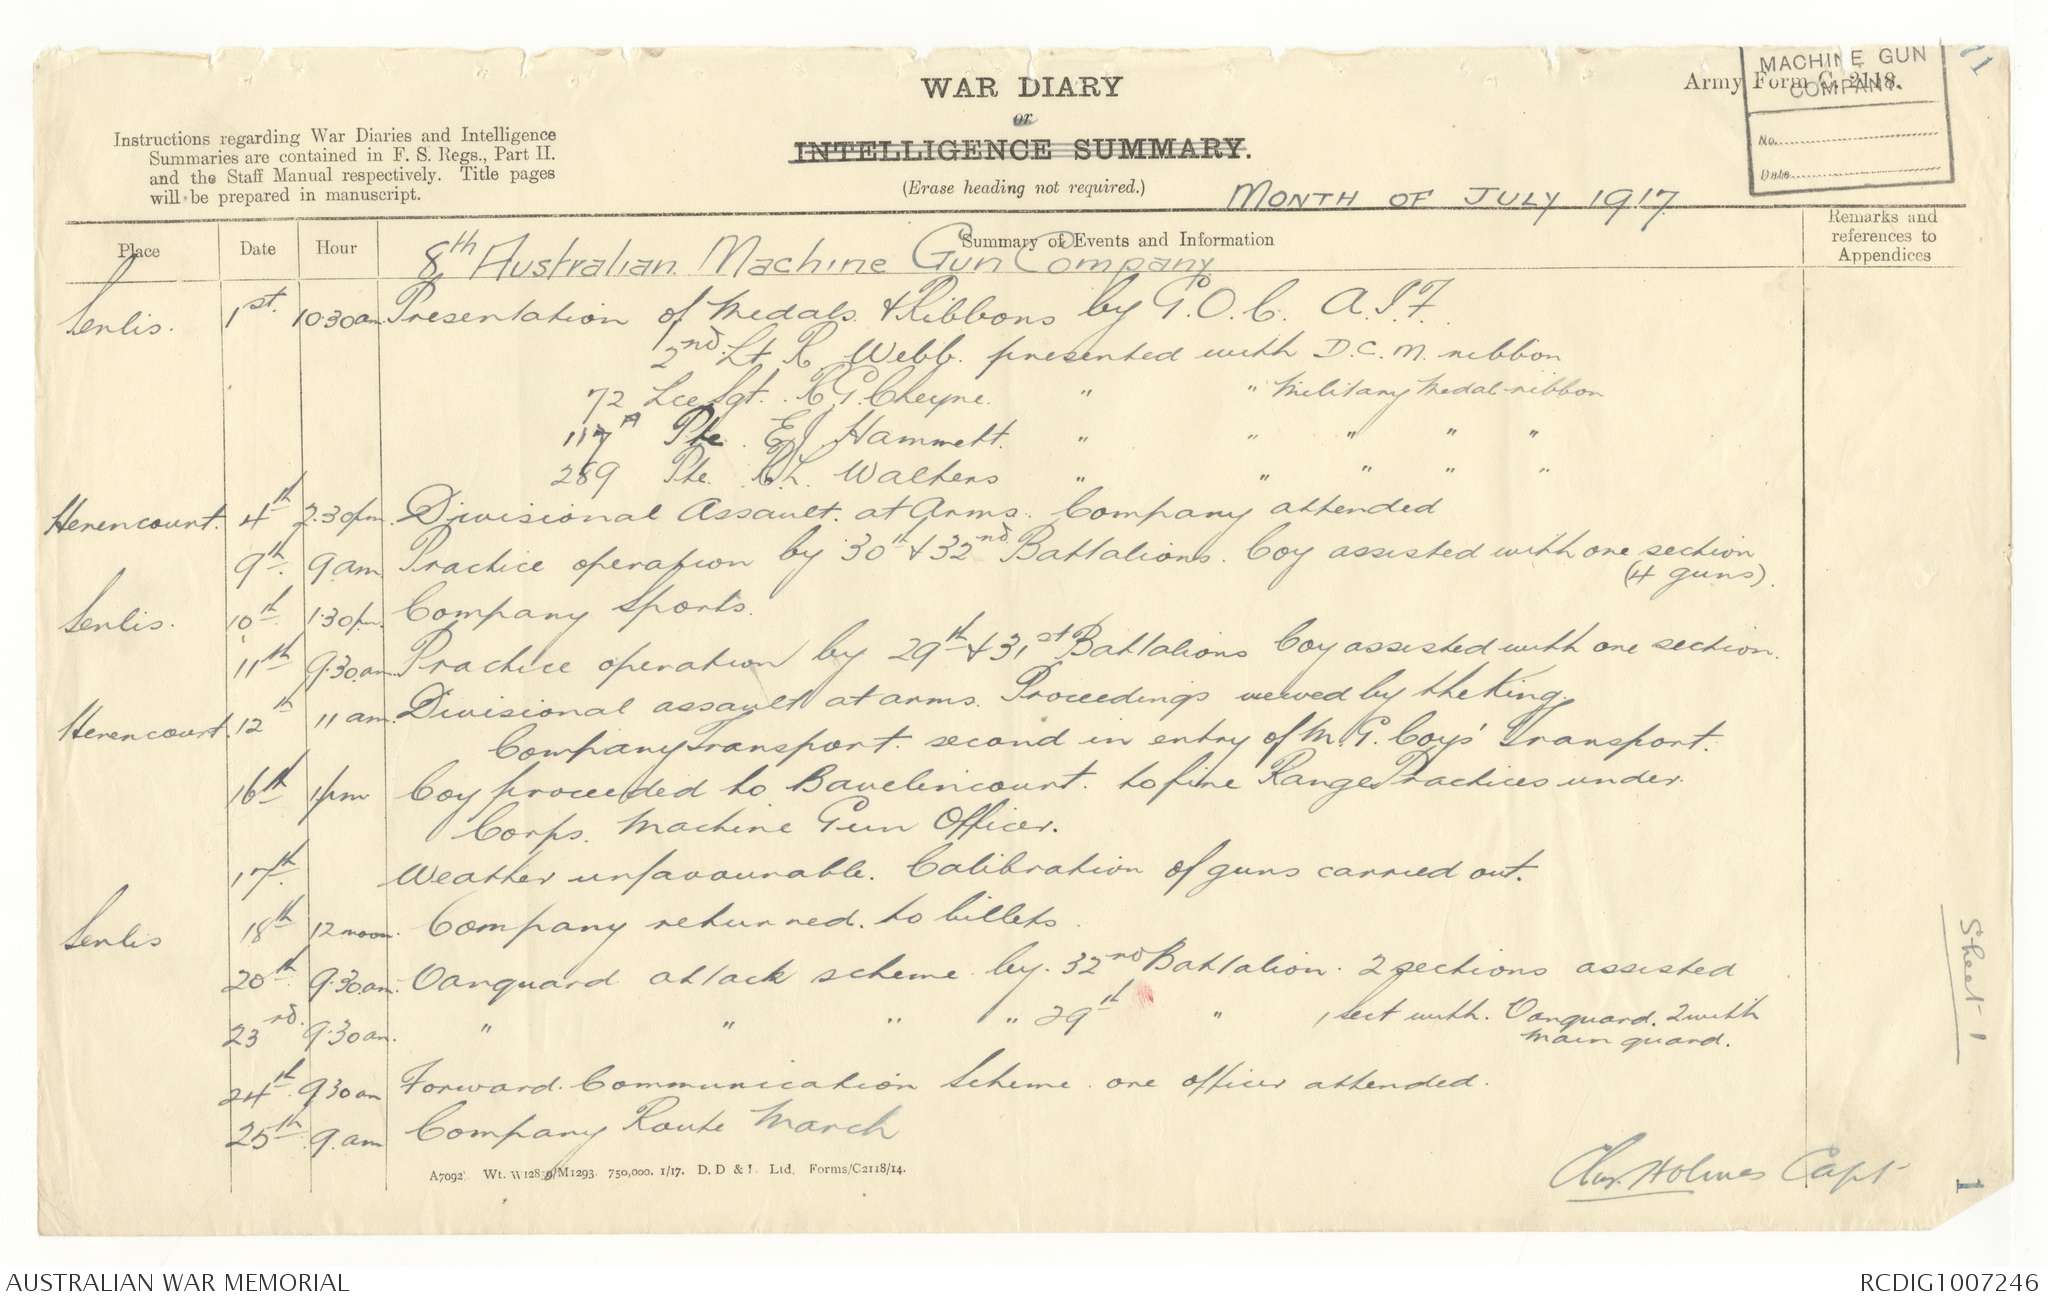 MACHINE GUN
COMPANY.
No.
Date
WAR DIARY
or
INTELLIGENCE SUMMARY.
(Erase heading not required.)
Army Form C. 2118.
Instructions regarding War Diaries and Intelligence
Summaries are contained in F. S. Regs., Part II.
and the Staff Manual respectively. Title pages
will be prepared in manuscript.
MONTH OF JULY 1917.
Place Date Hour Summary of Events and Information Remarks and references to Appendices
8th Australian Machine Gun Company
Senlis. 1st. 10.30am Presentation of Medals & Ribbons by G.O.C. A.I.F.
2nd. Lt. R. Webb. presented with D.C.M. ribbon
72 Lce Sgt. R.G. Cheyne. " " Military Medal ribbon
117A Pte. E J Hammett. " " " " "
289 Pte. R.L. Walters " " " " "
Henencourt. 4th 2.30pm. Divisional Assault. at Arms. Company attended
9th. 9am Practice operation by 30th & 32nd Battalions. Coy assisted with one section
(4 guns).
Senlis. 10th 1.30pm. Company Sports.
11th 9.30am Practice operation by 29th & 31st Battalions Coy assisted with one section.
Henencourt. 12th 11am. Divisional assault at arms. Proceedings viewed by the King.
Company transport. second in entry of M.G. Coys' transport.
16th 1pm Coy proceeded to Bavelincourt. to fire Range Practices under
Corps. Machine Gun Officer.
17th. Weather unfavourable. Calibration of guns carried out.
Senlis 18th 12 noon. Company returned. to billets.
20th 9.30am. Vanguard attack scheme. by. 32nd Battalion. 2 sections assisted
23rd. 9.30am. " " " " 29th " 1 sect with. Vanguard. 2 with
main guard.
24th. 9.30am Forward. Communication Scheme. one officer attended.
25th. 9.am Company Route March
Holmes Capt
Sheet 1
1
A7092. Wt. W1289/M1293. 750,000. 1/17. D. D & L. Ltd. Forms/C2118/14.
AUSTRALIAN WAR MEMORIAL RCDIG1007246